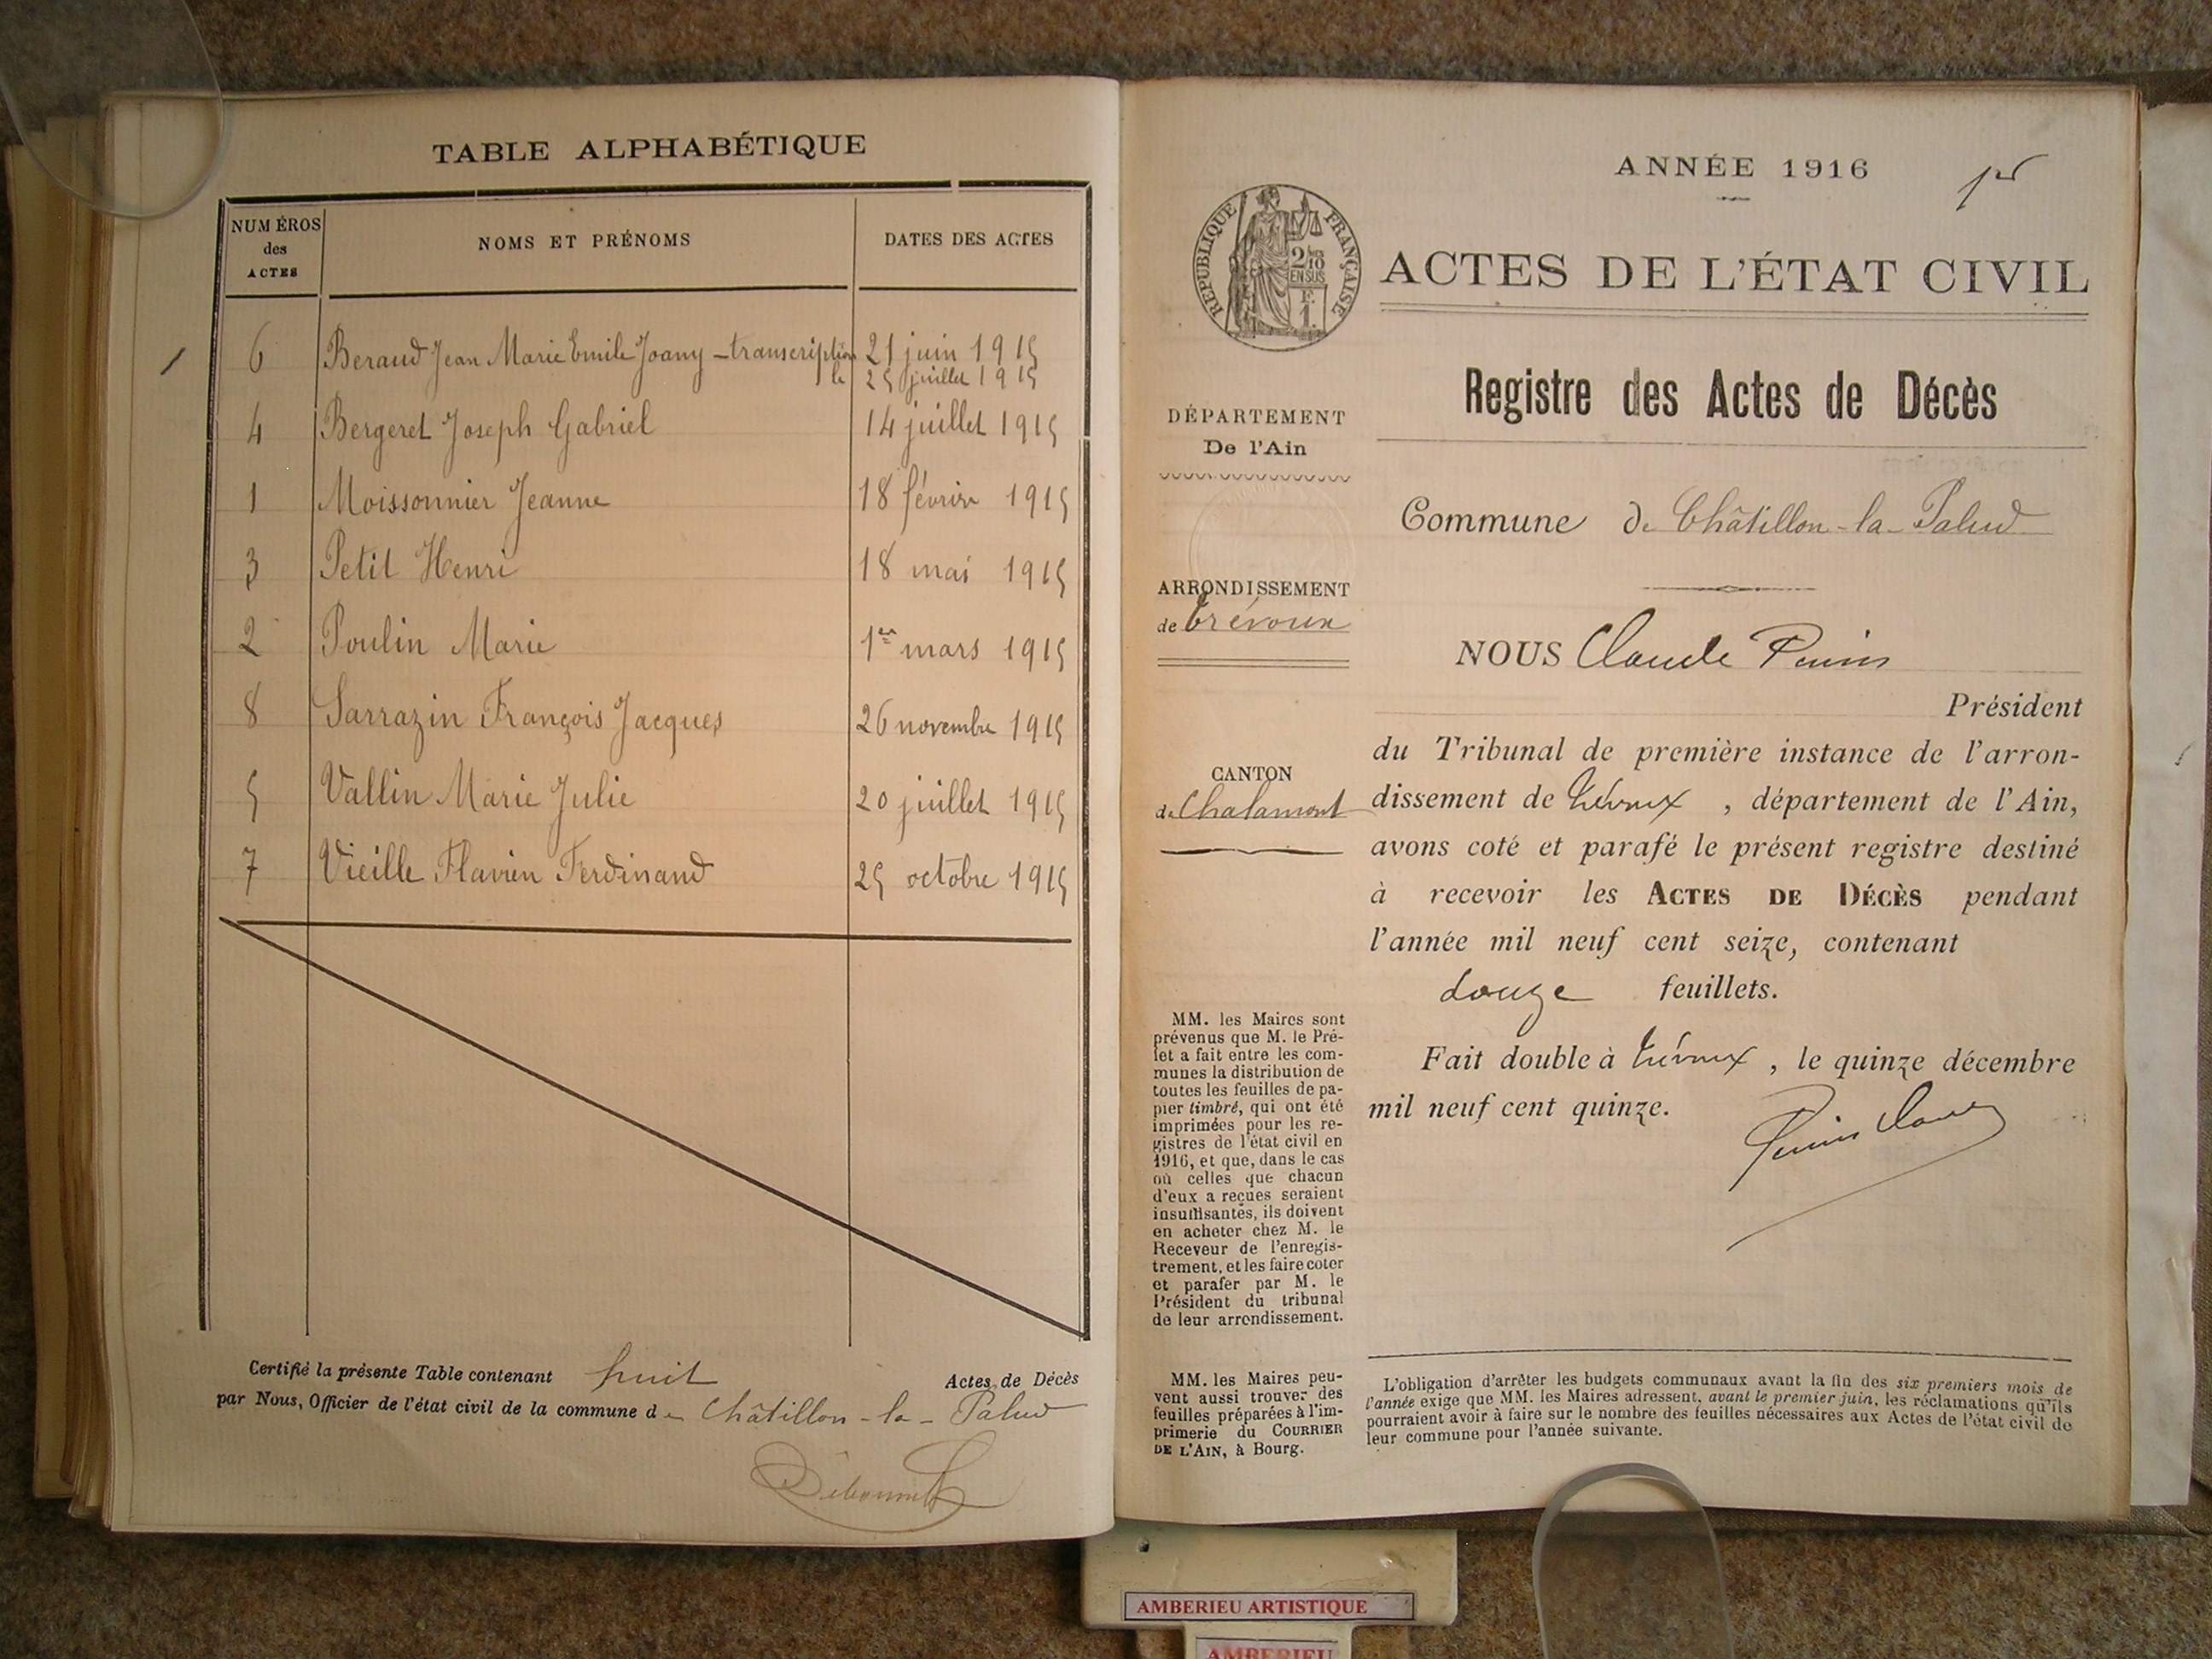 TABLE ALPHABÉTIQUE
NUMÉROS
des
ACTES
NOMS ET PRÉNOMS
DATES DES ACTES
6 Beraud Jean Marie Emile Joany - transcription 21 juin 1915
le 25 juillet 1915
4 Bergeret Joseph Gabriel 14 juillet 1915
1 Moissonnier Jeanne 18 février 1915
3 Petit Henri 18 mai 1915
2 Poulin Marie 1er mars 1915
8 Sarrazin François Jacques 26 novembre 1915
5 Vallin Marie Julie 20 juillet 1915
7 Vieille Flavien Ferdinand 25 octobre 1915
Certifié la présente Table contenant huit Actes de Décès
par Nous, Officier de l'état civil de la commune de Châtillon-la-Palud
ANNÉE 1916
1er
RÉPUBLIQUE FRANÇAISE
2/10
EN SUS
F.
1.
ACTES DE L'ÉTAT CIVIL
Registre des Actes de Décès
DÉPARTEMENT
De l'Ain
Commune de Châtillon-la-Palud
ARRONDISSEMENT
de Trévoux
NOUS Claude
Président
du Tribunal de première instance de l'arron-
dissement de Trévoux, département de l'Ain,
avons coté et parafé le présent registre destiné
à recevoir les ACTES DE DÉCÈS pendant
l'année mil neuf cent seize, contenant
douze feuillets.
Fait double à Trévoux, le quinze décembre
mil neuf cent quinze.
CANTON
de Chalamont
MM. les Maires sont
prévenus que M. le Pré-
fet a fait entre les com-
munes la distribution de
toutes les feuilles de pa-
pier timbré, qui ont été
imprimées pour les re-
gistres de l'état civil en
1916, et que, dans le cas
où celles que chacun
d'eux a reçues seraient
insuffisantes, ils doivent
en acheter chez M. le
Receveur de l'enregis-
trement, et les faire coter
et parafer par M. le
Président du tribunal
de leur arrondissement.
MM. les Maires peu-
vent aussi trouver des
feuilles préparées à l'im-
primerie du COURRIER
DE L'AIN, à Bourg.
L'obligation d'arrêter les budgets communaux avant la fin des six premiers mois de
l'année exige que MM. les Maires adressent, avant le premier juin, les réclamations qu'ils
pourraient avoir à faire sur le nombre des feuilles nécessaires aux Actes de l'état civil de
leur commune pour l'année suivante.
AMBERIEU ARTISTIQUE
AMBERIEU